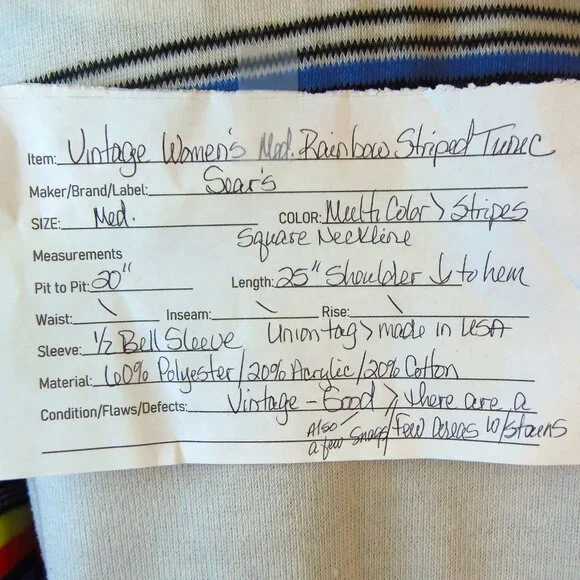 Item: Vintage Women's Med. Rainbow Striped Tunic
Maker/Brand/Label: Sear's
SIZE: Med. COLOR: Multi Color > Stripes
Square Neckline
Measurements
Pit to Pit: 20" Length: 25" Shoulder ↓ to hem
Waist: \ Inseam: \ Rise: \
Sleeve: 1/2 Bell Sleeve Union tag > made in USA
Material: 60% Polyester/20% Acrylic/20% Cotton
Condition/Flaws/Defects: Vintage - Good > there are a
Also a few snags / few areas w/stains